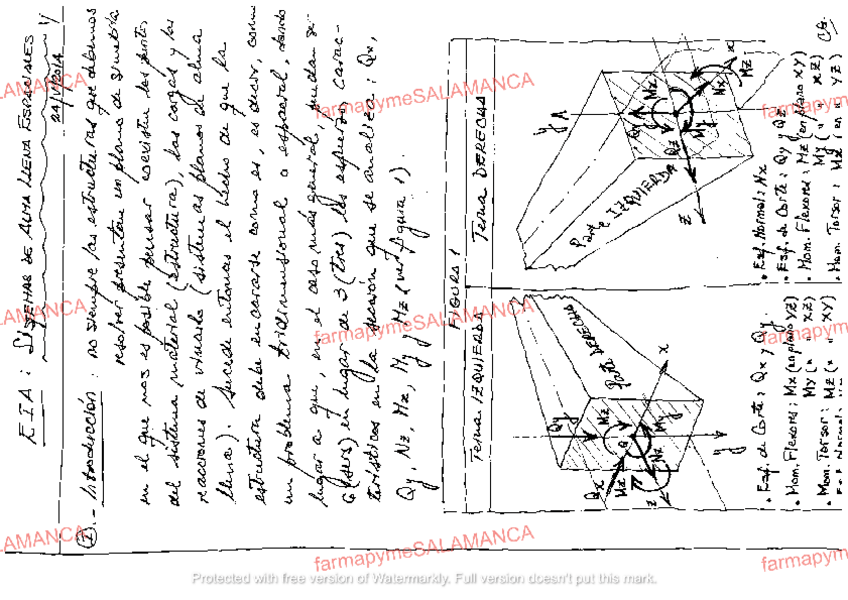 EIA : SISTEMAS DE ALMA LLENA ESPACIALES
1/
I.- Introducción : no siempre las estructuras que debemos
resolver presentan un plano de simetría
en el que nos es posible pensar coexisten los puntos
del sistema material (estructura), las cargas y las
reacciones de vínculo (sistemas planos de alma
llena). Sucede entonces el hecho de que la
estructura debe encararse como es, es decir, como
un problema tridimensional o espacial, dando
lugar a que, en el caso más general, puedan se-
6 (seis) en lugar de 3 (tres) los esfuerzos carac-
terísticos en la sección que se analiza : Qx,
Qy, Nz, Mx, My y Mz (ver figura 1).
FIGURA 1
Terna IZQUIERDA
Terna DERECHA
Parte DERECHA
Qy
Mz
Qx
Mx
My
Nz
z
x
y
Parte IZQUIERDA
y
Mz
Qz
My
Nx
x
z
• Esf. de Corte : Qx y Qy.
• Mom. Flexores : Mx (en plano YZ)
My (" " XZ)
• Mom. Torsor : Mz (" " XY)
• Esf. Normal: Nx
• Esf. de Corte : Qy y Qz
• Mom. Flexores : Mz (en plano XY)
My (" " XZ)
• Mom. Torsor : Mx (en " YZ)
CG.
farmapymeSALAMANCA
farmapymeSALAMANCA
farmapymeSALAMANCA
Protected with free version of Watermarkly. Full version doesn't put this mark.